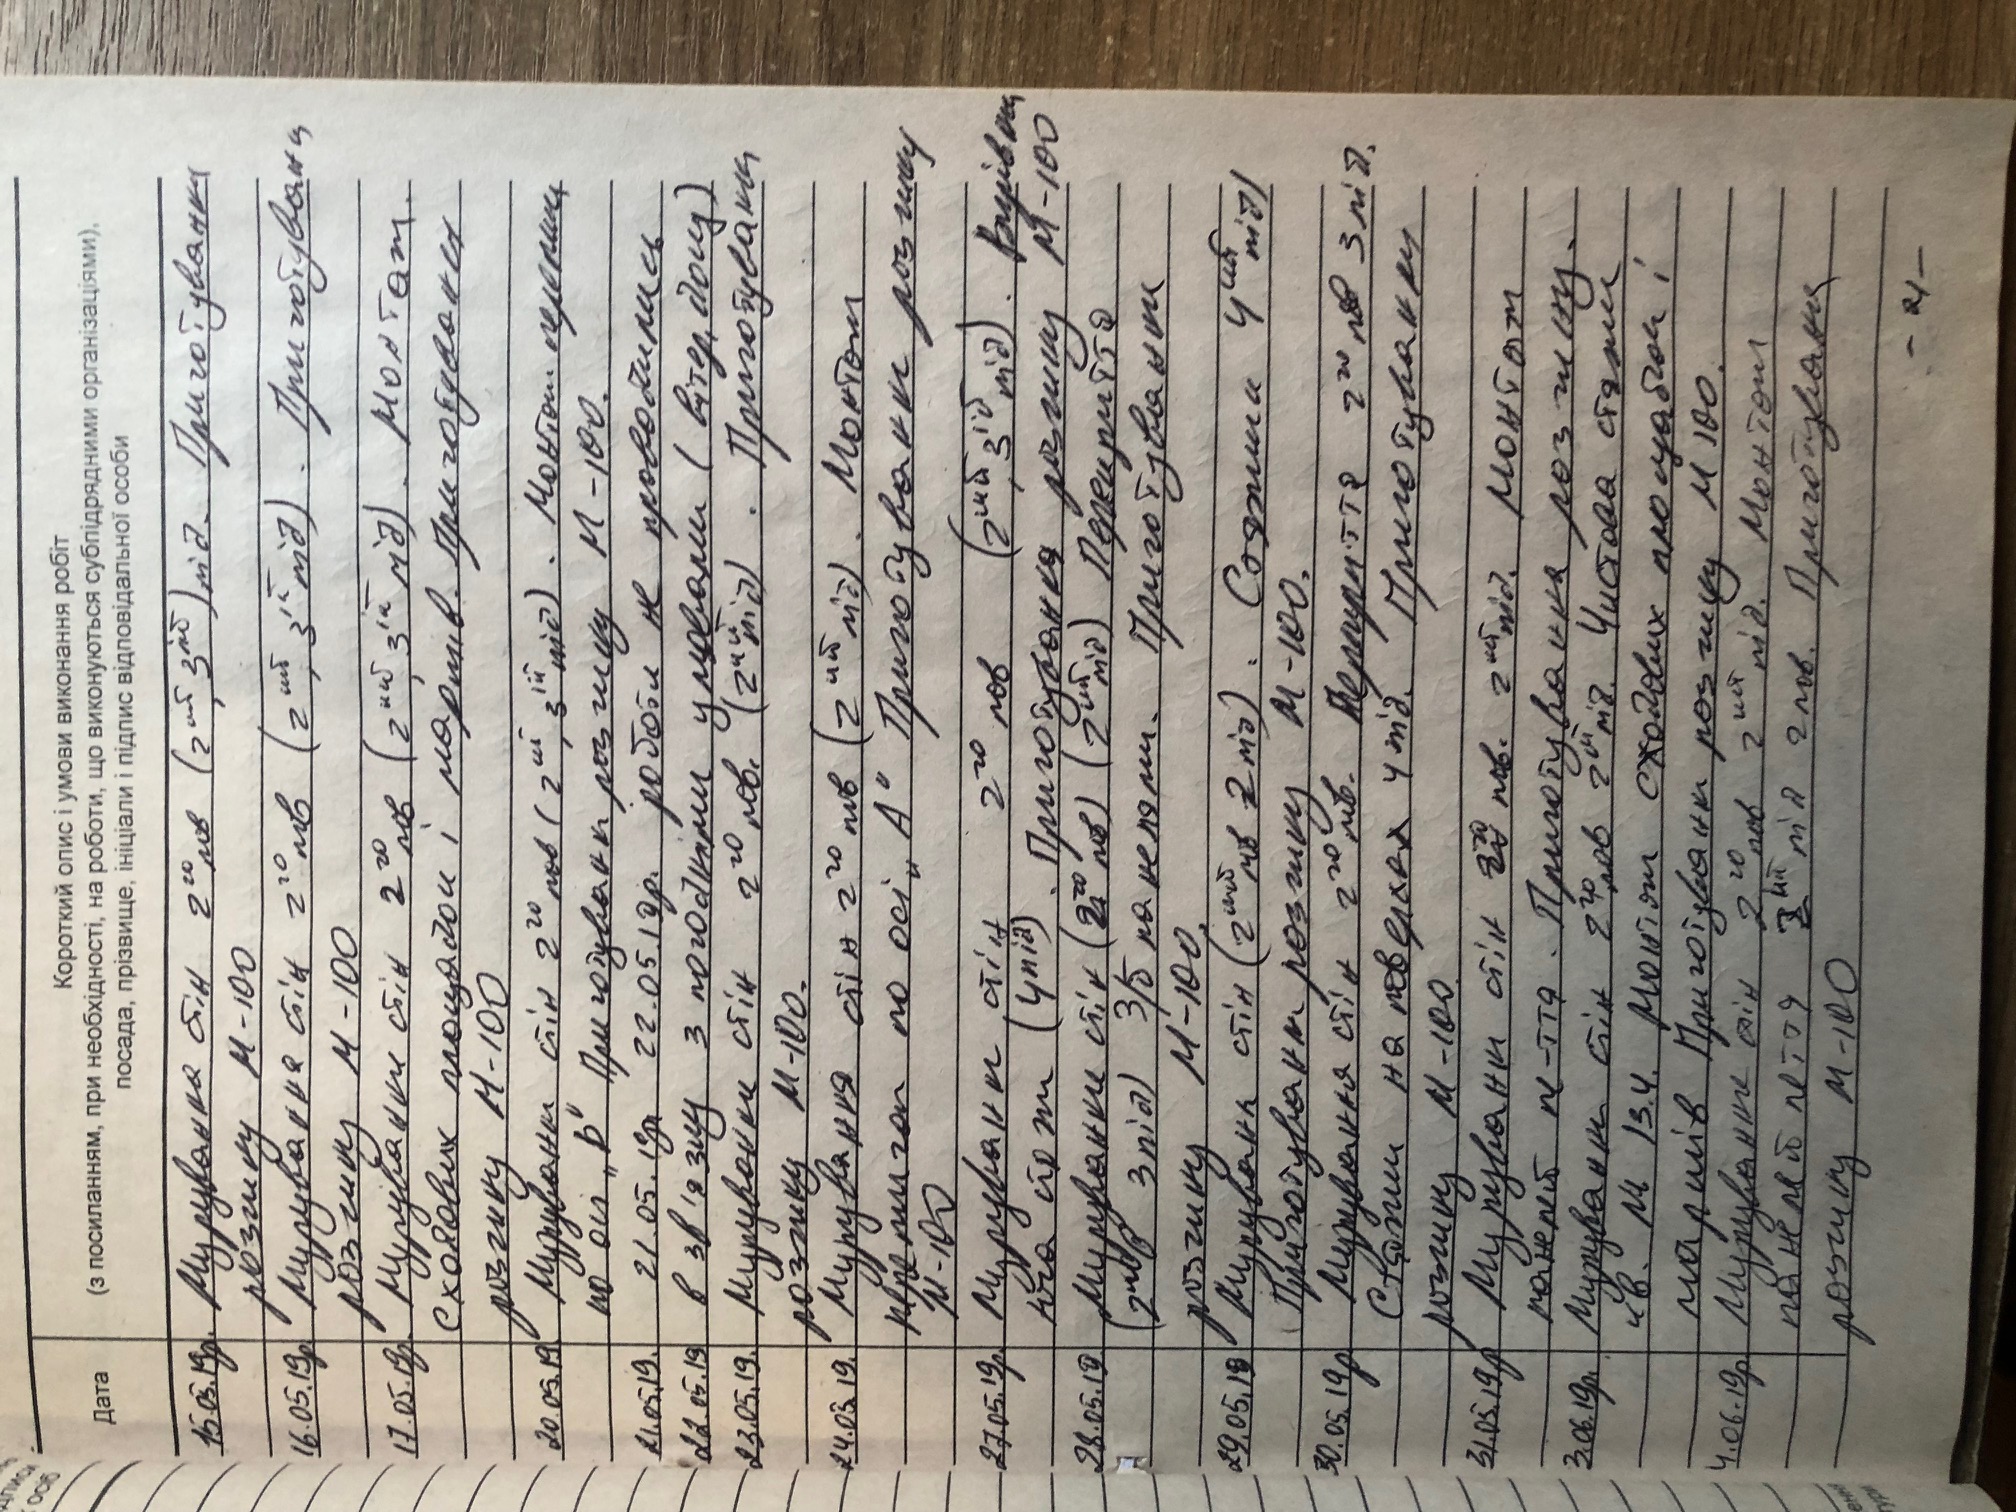 Короткий опис і умови виконання робіт
Дата (з посиланням, при необхідності, на роботи, що виконуються субпідрядними організаціями),
посада, прізвище, ініціали і підпис відповідальної особи
15.05.19р. Мурування стін 2го пов (2ий, 3ий) під. Приготування
розчину М-100
16.05.19р Мурування стін 2го пов (2ий, 3ій під). Приготування
розчину М-100
17.05.19р. Мурування стін 2го пов (2ий, 3ій під). Монтаж
сходових площадок і маршів. Приготування
розчину М-100
20.05.19 Мурування стін 2го пов (2ий, 3ій під). Монтаж
по осі „В" Приготування розчину М-100.
21.05.19. 21.05.19р. 22.05.19р. роботи не проводились
22.05.19 в зв'язку з погодніми умовами (вітер, дощ)
23.05.19. Мурування стін 2го пов. (2ий під). Приготування
розчину М-100.
24.05.19. Мурування стін 2го пов (2ий під). Монтаж
по осі „А" Приготування розчину
М-100
27.05.19р. Мурування стін 2го пов (2ий, 3ій під).
(4 під). Приготування розчину М-100
28.05.19 Мурування стін (2го пов) (2ий під) Перекриття
(2 пов 3 під) З/б панелями. Приготування
розчину М-100.
29.05.19 Мурування стін (2ий пов 2 під). Стяжка 4ий під)
Приготування розчину М-100.
30.05.19р Мурування стін 2го пов. Перекриття 2го пов 3 під.
Стяжки на поверхах 4 під. Приготування
розчину М-100.
31.05.19р Мурування стін 2го пов. 2ий під. Монтаж
панелей п-ття. Приготування розчину.
3.06.19р. Мурування стін 2го пов 2ий під. Чистова стяжка
кв. № 13.4. Монтаж сходових площадок і
маршів Приготування розчину М 100.
4.06.19р. Мурування стін 2го пов 2ий під. Монтаж
панелей п-ття під 2 пов. Приготування
розчину М-100